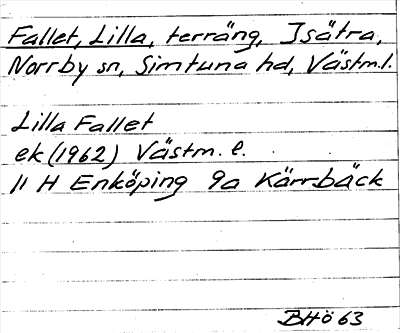 Fallet, Lilla, terräng, Isätra,
Norrby sn, Simtuna hd, Västm.l.
Lilla Fallet
ek (1962) Västm. l.
11 H Enköping 9a Kärrbäck
BHö 63